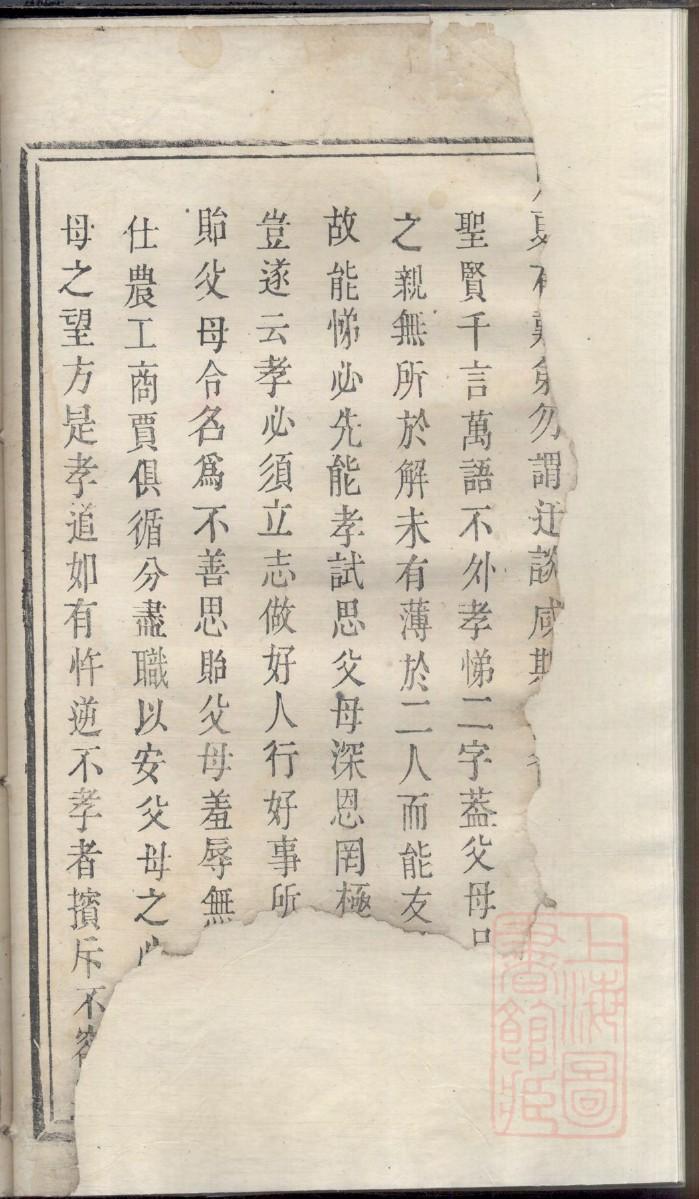 勿謂迂談咸斯
聖賢千言萬語不外孝悌二字葢父母
之親無所於解未有薄於二人而能友
故能悌必先能孝試思父母深恩罔極
豈遂云孝必須立志做好人行好事所
貽父母令名為不善思貽父母羞辱無
仕農工商賈俱循分盡職以安父母之心
母之望方是孝道如有忤逆不孝者擯斥不容
上海圖
書館藏